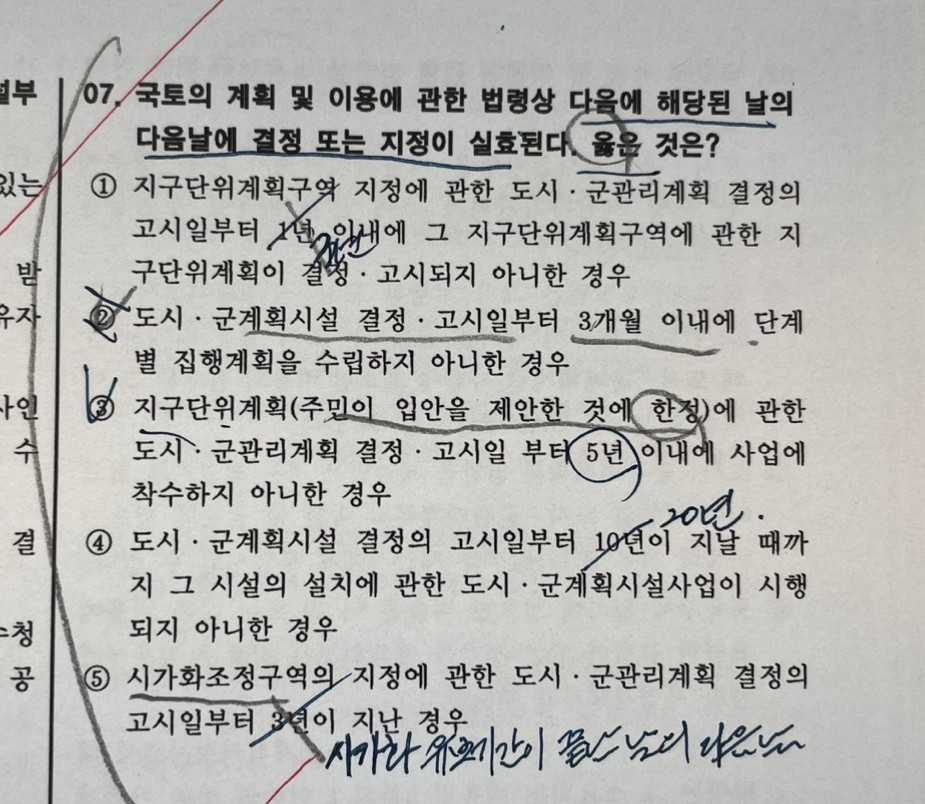 07. 국토의 계획 및 이용에 관한 법령상 다음에 해당된 날의
다음날에 결정 또는 지정이 실효된다. 옳은 것은?
① 지구단위계획구역 지정에 관한 도시·군관리계획 결정의
고시일부터 1년 이내에 그 지구단위계획구역에 관한 지
3년
구단위계획이 결정·고시되지 아니한 경우
② 도시·군계획시설 결정·고시일부터 3개월 이내에 단계
별 집행계획을 수립하지 아니한 경우
③ 지구단위계획(주민이 입안을 제안한 것에 한정)에 관한
도시·군관리계획 결정·고시일 부터 5년 이내에 사업에
착수하지 아니한 경우
20년.
④ 도시·군계획시설 결정의 고시일부터 10년이 지날 때까
지 그 시설의 설치에 관한 도시·군계획시설사업이 시행
되지 아니한 경우
⑤ 시가화조정구역의 지정에 관한 도시·군관리계획 결정의
고시일부터 3년이 지난 경우
시가화 유보기간이 끝난 날의 다음날
설부
있는
받
유자
사인
수
결
수청
공